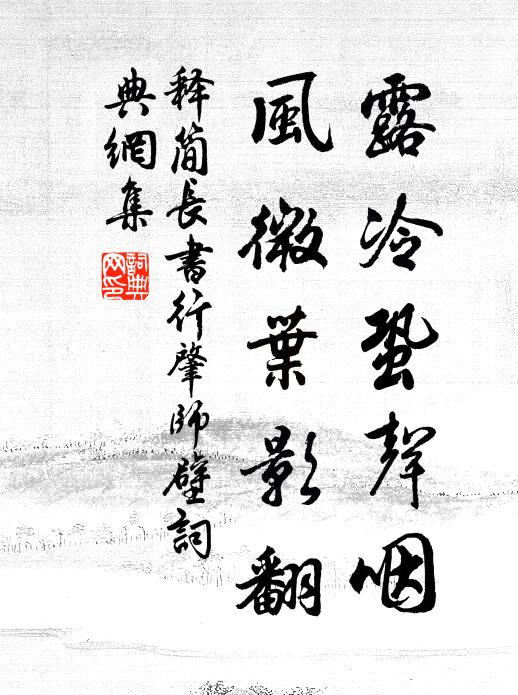 露冷蛩聲咽
風微葉影翻
释簡長書行肇師壁詞
典網集
詞典
网印